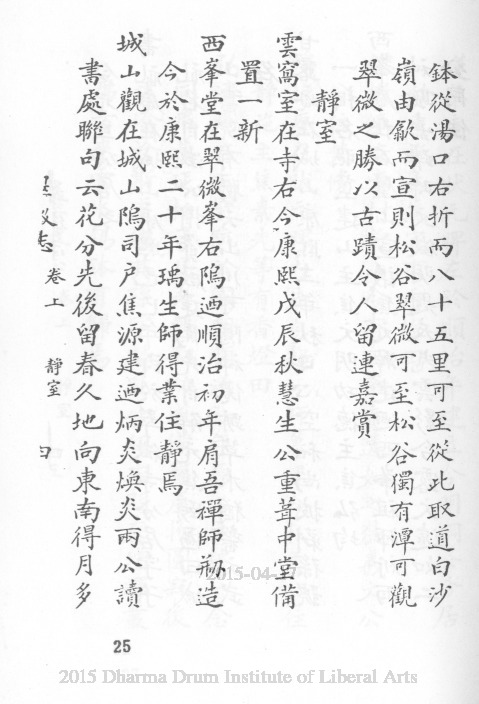 鉢從湯口右折而八十五里可至從此取道白沙
嶺由歙而宣則松谷翠微可至松谷獨有潭可觀
翠微之勝以古蹟令人留連嘉賞
靜室
雲窩室在寺右今康熙戊辰秋慧生公重葺中堂備
置一新
西峯堂在翠微峯右隖迺順治初年肩吾禪師剏造
今於康熙二十年瑀生師得業住靜焉
城山觀在城山隖司户焦源建迺炳炎煥炎兩公讀
書處聯句云花分先後留春久地向東南得月多
志 卷上 靜室
25
2015-04-
2015 Dharma Drum Institute of Liberal Arts